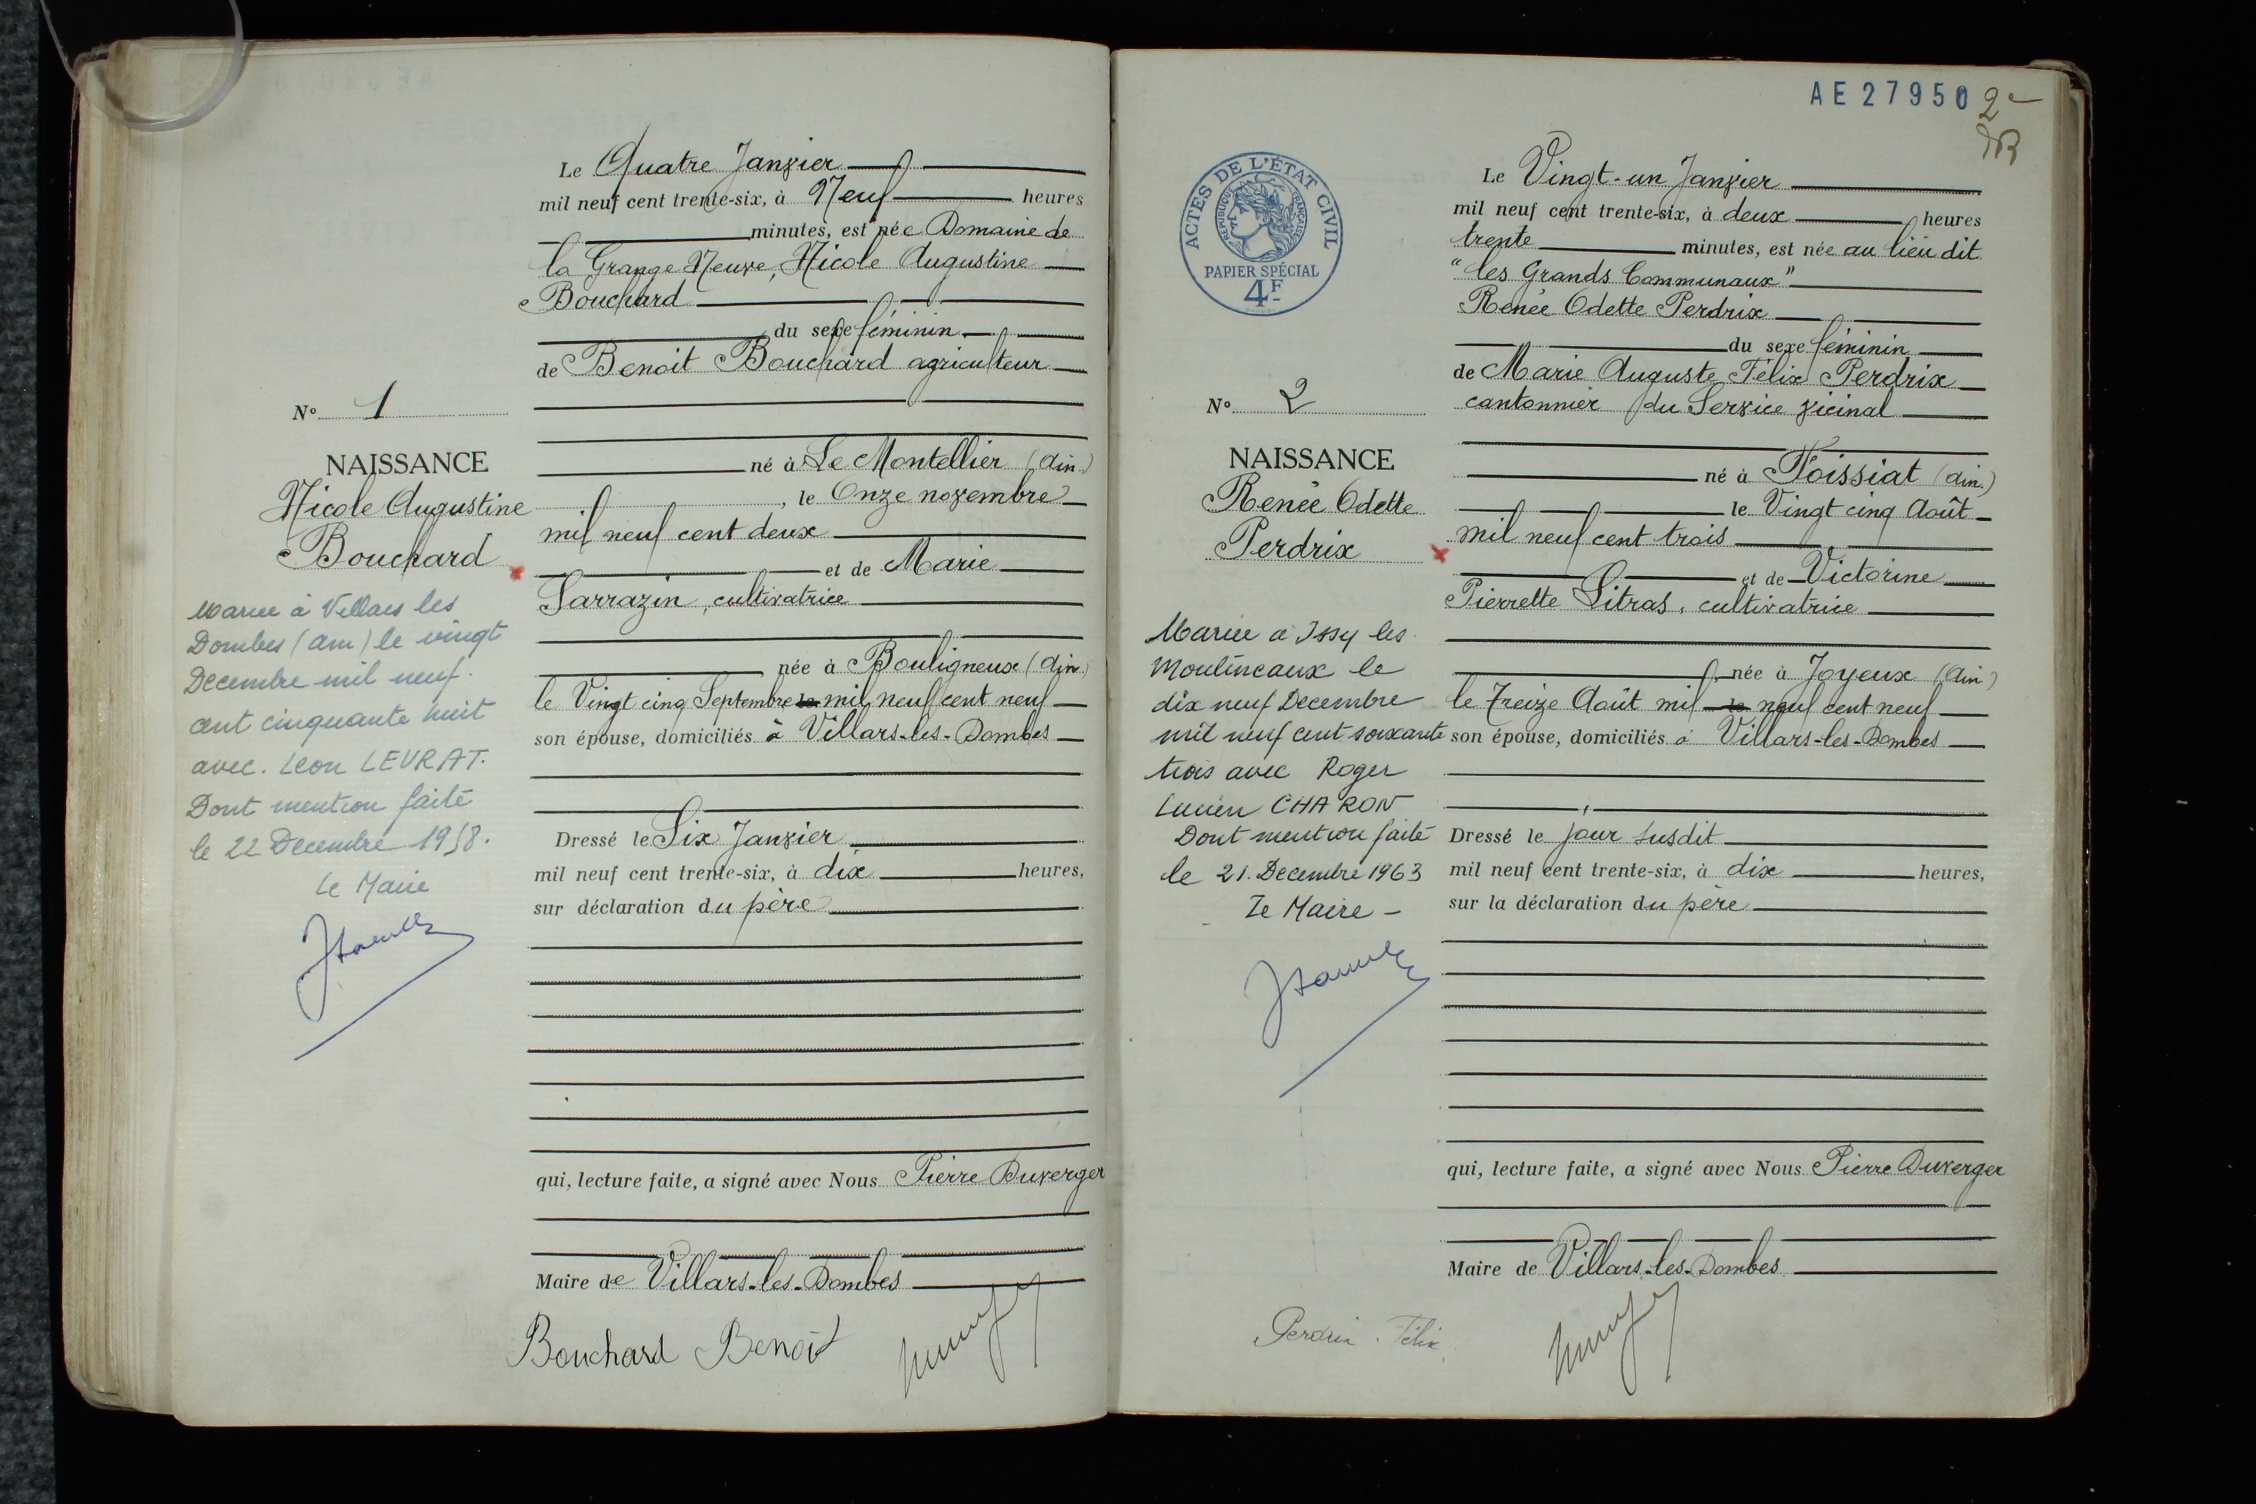 Le Quatre Janvier
mil neuf cent trente-six, à Neuf heures
minutes, est née Domaine de
la Grange Neuve, Nicole Augustine
Bouchard
du sexe féminin
de Benoit Bouchard agriculteur
N° 1
NAISSANCE
Nicole Augustine
Bouchard
né à Le Montellier (Ain)
, le Onze novembre
mil neuf cent deux
et de Marie
Sarrazin, cultivatrice
née à Bouligneux (Ain)
le Vingt cinq Septembre le mil neuf cent neuf
son épouse, domiciliés à Villars-les-Dombes
Dressé le Six Janvier
mil neuf cent trente-six, à dix heures,
sur déclaration du père
qui, lecture faite, a signé avec Nous Pierre Duverger
Maire de Villars-les-Dombes
Bouchard Benoit
Mariée à Villars les
Dombes (Ain) le vingt
Decembre mil neuf
cent cinquante huit
avec Leon LEVRAT.
Dont mention faite
le 22 Decembre 1958.
Le Maire
AE27950
2e
ACTES DE L'ÉTAT CIVIL
RÉPUBLIQUE FRANÇAISE
PAPIER SPÉCIAL
4F
Le Vingt-un Janvier
mil neuf cent trente-six, à deux heures
trente minutes, est née au lieu dit
"les Grands Communaux"
Renée Odette Perdrix
du sexe féminin
de Marie Auguste Félix Perdrix
cantonnier du Service vicinal
N° 2
NAISSANCE
Renée Odette
Perdrix
né à Foissiat (Ain)
le Vingt cinq Août
mil neuf cent trois
et de Victorine
Pierrette Litras, cultivatrice
née à Joyeux (Ain)
le Treize Août mil le neuf cent neuf
son épouse, domiciliés à Villars-les-Dombes
Dressé le jour susdit
mil neuf cent trente-six, à dix heures,
sur la déclaration du père
qui, lecture faite, a signé avec Nous Pierre Duverger
Maire de Villars-les-Dombes
Perdrix Félix
Mariée à Issy les
Moulineaux le
dix neuf Decembre
mil neuf cent soixante
trois avec Roger
Lucien CHARON
Dont mention faite
le 21. Decembre 1963
Le Maire -